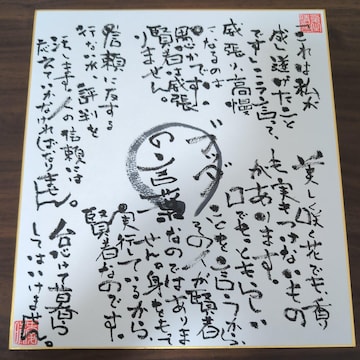 これは私が
成し遂げたこと
です。こう言って、
威張り高慢
になるのは
愚かです。
賢者は威張
りません。
ブッダ
の言葉
美しく咲く花でも、香り
も実をつけないもの
があります。
口でもっともらしい
ことを言うから
その人が賢者
なのではありま
せん。身をもって
実行しているから、
賢者なのです。
信頼に反する
行ないは、評判を
汚します。人の信頼には
応えていかなければなりません。
怠けて暮ら
してはいけません。